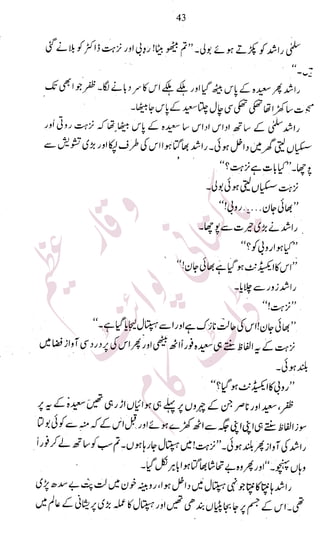 43
سلمٰی راشد کو پکڑتے ہوئے بولی۔ ”تم بیٹھو بیٹا! روبی اور نزہت ڈاکٹر کو بلانے گئی
ہیں۔“
راشد پھر سعیدہ کے پاس بیٹھ گیا اور ہلکے ہلکے اس کا سر دبانے لگا۔ ظفر جو ابھی تک
مبہوت سا کھڑا تھا تھکی تھکی سی چال چلتا سعیدہ کے پاس جا بیٹھا۔
راشد سلمٰی کے ساتھ اداس اداس سا سعیدہ کے پاس بیٹھا تھا کہ نزہت روتی اور
سسکیاں لیتی گھر میں داخل ہوئی۔ راشد بھاگتا ہوا اس کی طرف لپکا اور بڑی تشویش سے
پوچھا۔ ”کیا بات ہے نزہت؟“
نزہت سسکیاں لیتی ہوئی بولی۔
”بھائی جان..... روبی!“
راشد نے بڑی حیرت سے پوچھا۔
”کیا ہوا روبی کو؟“
”اس کا ایکسیڈنٹ ہو گیا ہے بھائی جان!“
راشد زور سے چلایا۔
”نزہت!“
”بھائی جان! اس کی حالت نازک ہے اور اسے ہسپتال لیجایا گیا ہے۔“
نزہت کے یہ الفاظ سنتے ہی سعیدہ فوراً اٹھ بیٹھی اور پھر اس کی پر درد سی آواز فضا میں
بلند ہوئی۔
”روبی کا ایکسیڈنٹ ہو گیا؟“
ظفر، سعید اور ناصر جن کے چہروں پر پہلے ہی ہوائیاں اڑ رہی تھیں سعیدہ کے یہ پر
سوز الفاظ سنتے ہی اپنی اپنی جگہ سے اٹھ کھڑے ہوئے اور قبل اس کے کہ منہ سے کوئی بولتا
راشد کی آواز پھر بلند ہوئی۔ ”نزہت! میں ہسپتال جا رہا ہوں۔ تم سب کو ساتھ لے کر فوراً
وہاں پہنچو۔“ اور پھر وہ بے تحاشا بھاگتا ہوا باہر نکل گیا۔
راشد ہانپتا کانپتا جونہی ہسپتال میں داخل ہوا، روبینہ خون میں لت پت بے سدھ پڑی
تھی۔ اس کے جسم پر جا بجا پٹیاں بندھی تھیں اور ہسپتال کا عملہ بڑی پریشانی کے عالم میں
وقار عظیم
پاکستانی پوائنٹ
ڈاٹ کام